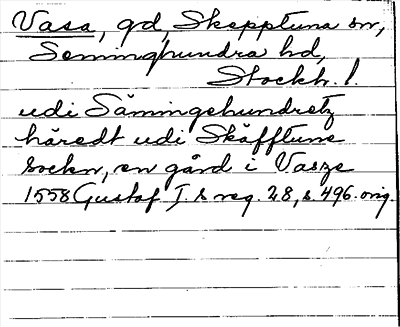 Vasa, gd, Skepptuna sn,
Seminghundra hd,
Stockh. l.
udi Såmingehundretz
häredt udi Skäfftune
sockn, en gård i Vasze
1558 Gustaf I. s reg. 28, s. 496. orig.